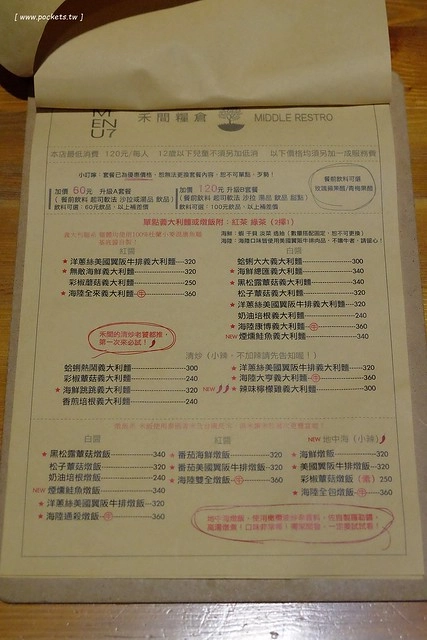 [ www.pockets.tw ]
MENU7
禾間糧倉
MIDDLE RESTRO
本店最低消費 120元/每人 12歲以下兒童不須另加低消 以下價格均須另加一成服務費
加價 60元 升級A套餐
飲料可選:60元飲品,以上補差價
加價 120元 升級B套餐
飲料可選:100元飲品,以上補差價
單點義大利麵或燉飯附:紅茶 綠茶 (2擇1)
紅醬
★洋蔥絲美國翼阪牛排義大利麵---320
★無敵海鮮義大利麵---320
彩椒蘑菇義大利麵---250
★海陸全來義大利麵---牛---360
禾間的清炒老饕都推,
第一次來必試!
白醬
蛤蜊大大義大利麵---300
★海鮮總匯義大利麵---340
★黑松露蕈菇義大利麵---340
松子蕈菇義大利麵---320
★洋蔥絲美國翼阪牛排義大利麵---320
奶油培根義大利麵---240
★海陸康博義大利麵---牛---360
NEW 煙燻鮭魚義大利麵---340
清炒 (小辣,不加辣請先告知喔!)
蛤蜊熱鬧義大利麵---300
彩椒蘑菇義大利麵---240
★海鮮跳跳義大利麵---320
香煎培根義大利麵---240
★洋蔥絲美國翼阪牛排義大利麵---320
★海陸大亨義大利麵---牛---360
NEW ★辣味檸檬雞義大利麵---320
白醬
★黑松露蕈菇燉飯---340
松子蕈菇燉飯---320
奶油培根燉飯---240
NEW 煙燻鮭魚燉飯---340
★洋蔥絲美國翼阪牛排燉飯---320
★海陸通殺燉飯---牛---360
紅醬
★番茄海鮮燉飯---320
★番茄美國翼阪牛排燉飯---320
★海陸雙全燉飯---牛---360
NEW 地中海 (小辣)
★海鮮燉飯---320
★美國翼阪牛排燉飯---320
彩椒蘑菇燉飯 (素) 250
★海陸全包燉飯---牛---360